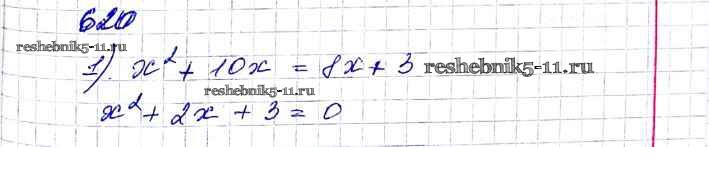 620
reshebnik5-11.ru
1). x² + 10x = 8x + 3 reshebnik5-11.ru
reshebnik5-11.ru
x² + 2x + 3 = 0